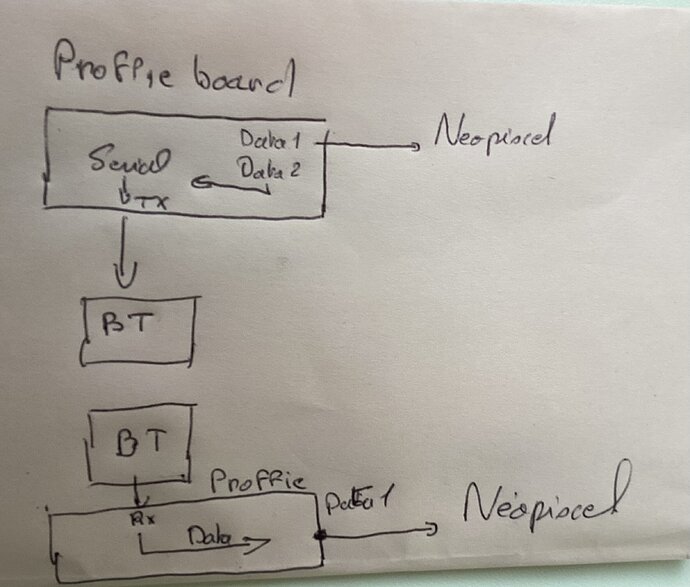 Proffie board
Data 1
Neopixcel
Serial
Data 2
TX
BT
BT
Proffie
Data 1
Neopixcel
Rx
Data